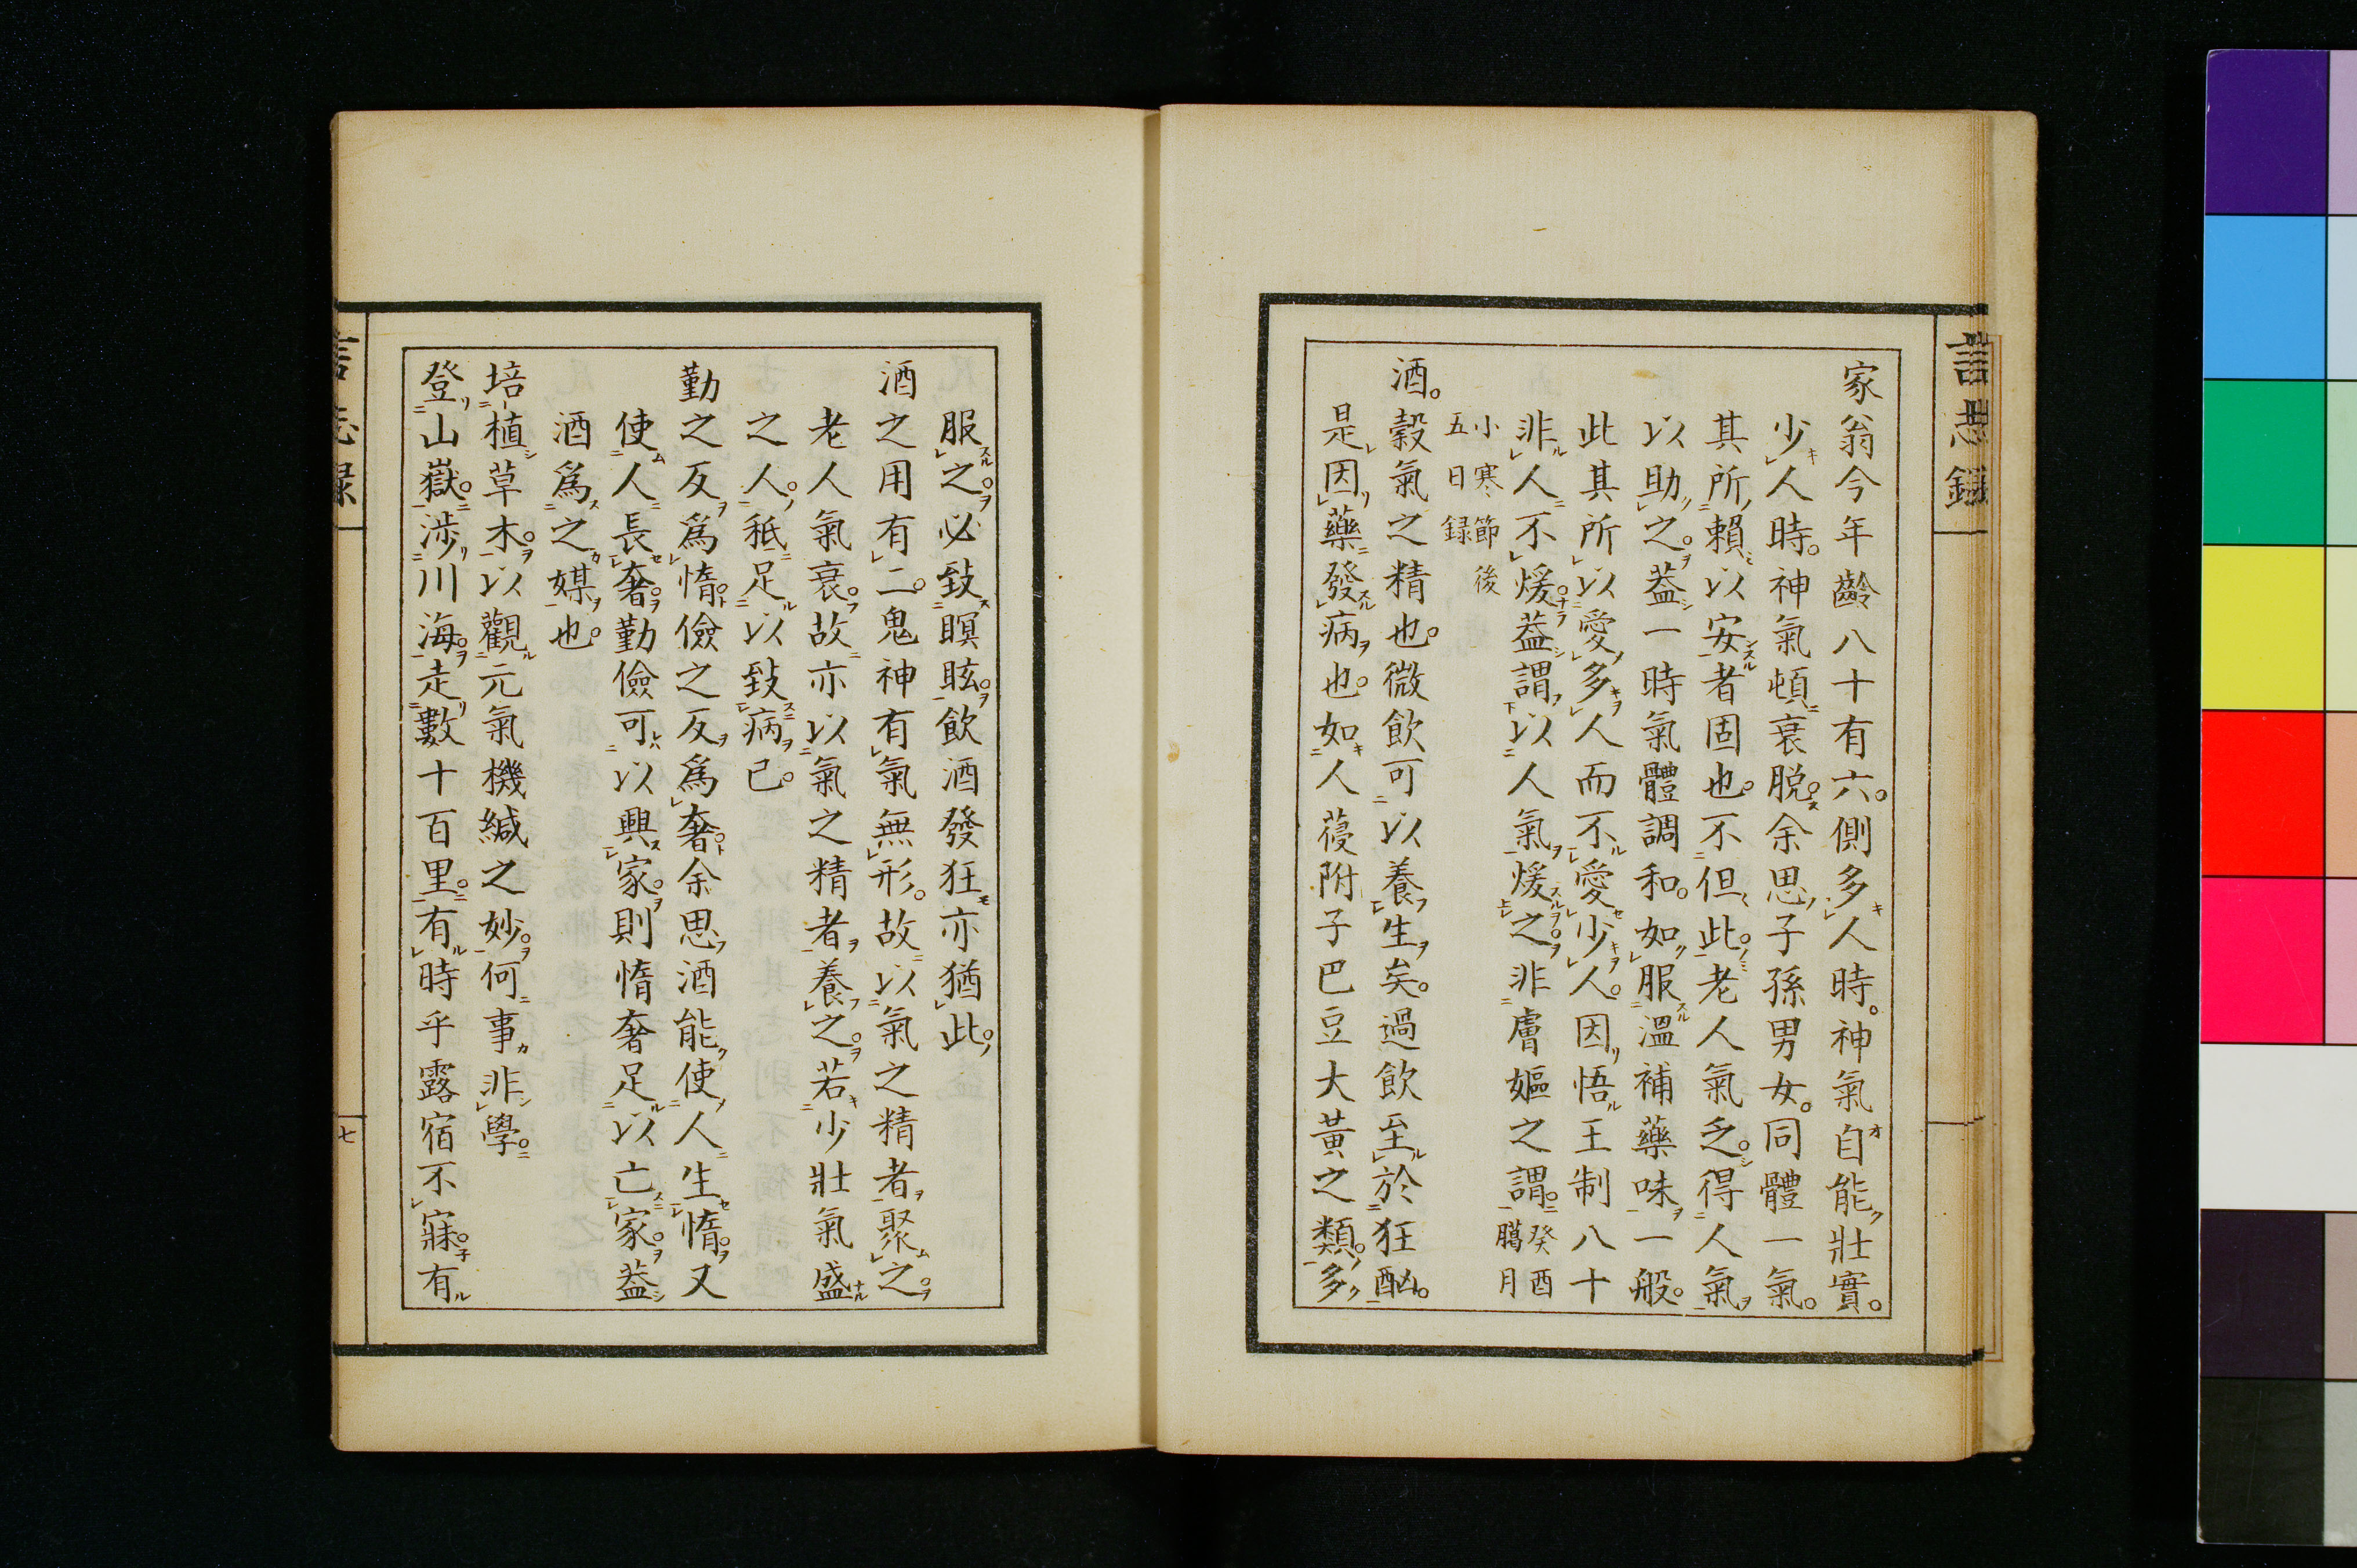 言志録
家翁今年齡八十有六。側多人時。神氣自能壯實。
少人時。神氣頓衰脱。余思子孫男女。同體一氣。
其所賴以安者固也。不但此。老人氣乏。得人氣
以助之。蓋一時氣體調和。如服溫補藥味一般。
此其所以愛多人而不愛少人。因悟王制八十
非人不煖。蓋謂以人氣煖之。非膚嫗之謂。癸酉臘月
小寒節後五日録
酒。穀氣之精也。微飲可以養生矣。過飲至於狂酗。
是因藥發病也。如人葠附子巴豆大黃之類。多
服之。必致瞑眩。飲酒發狂亦猶此。
酒之用有二。鬼神有氣無形。故以氣之精者聚之。
老人氣衰。故亦以氣之精者養之。若少壯氣盛
之人。秪足以致病已。
勤之反爲惰。儉之反爲奢。余思酒能使人生惰。又
使人長奢。勤儉可以興家。則惰奢足以亡家。蓋
酒爲之媒也。
培植草木。以觀元氣機緘之妙。何事非學。
登山嶽。渉川海。走數十百里。有時乎露宿不寐。有
言志録
七